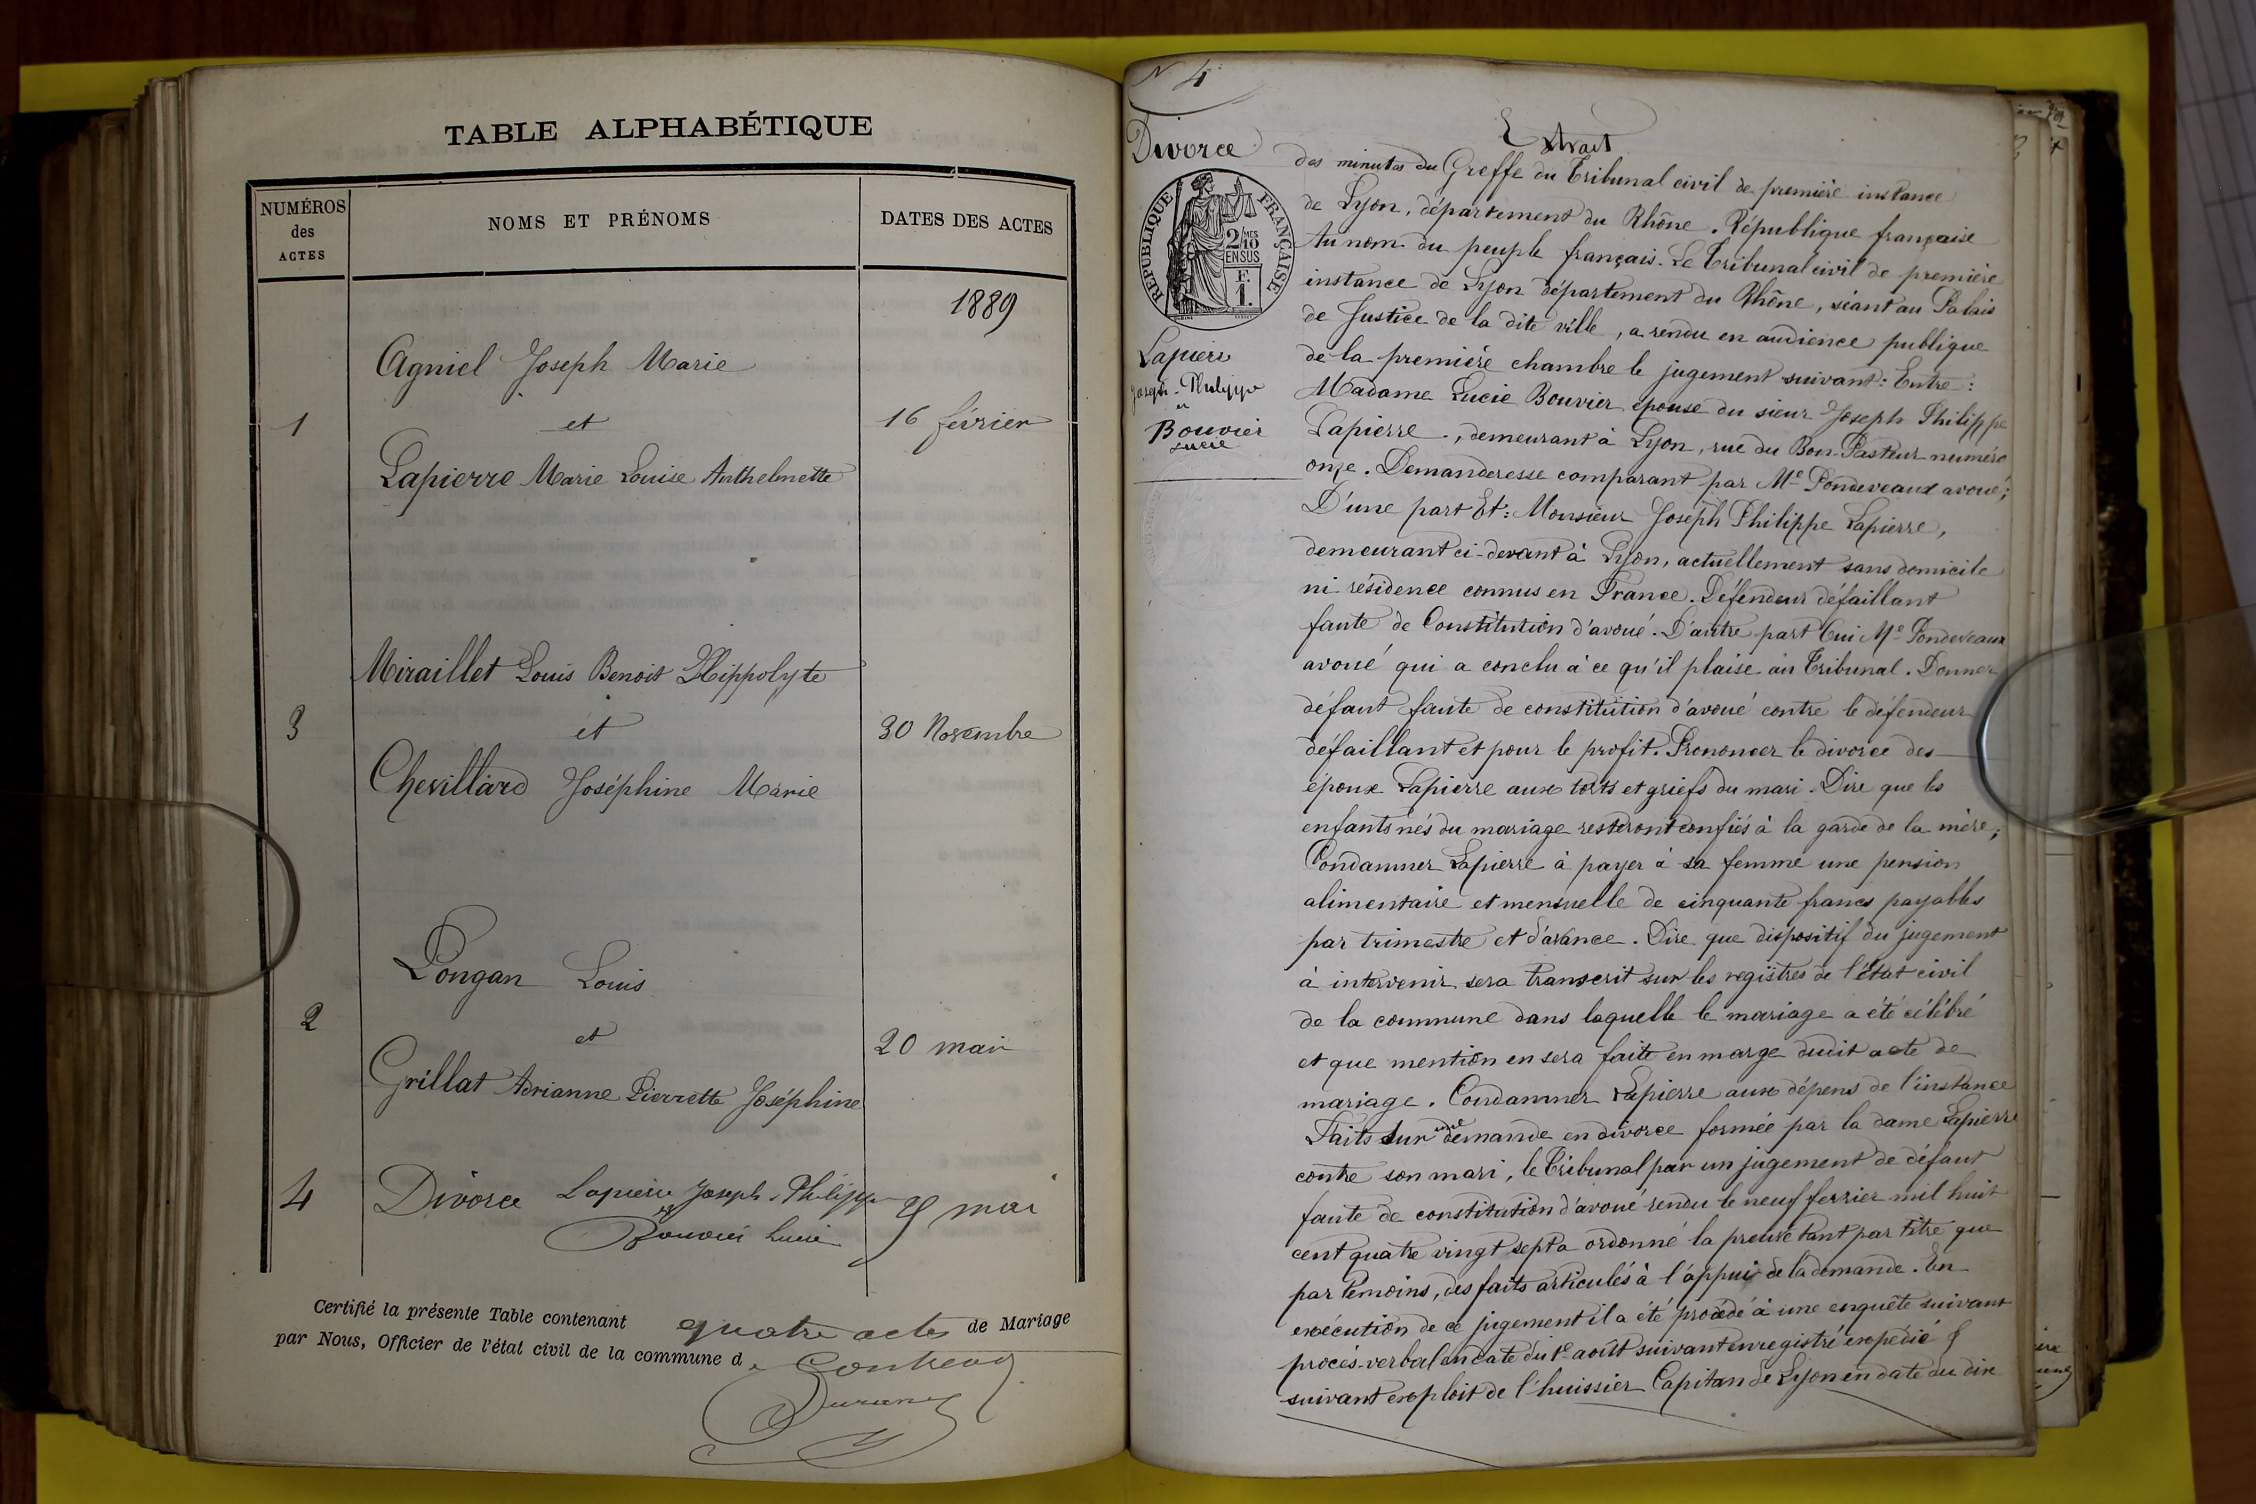 TABLE ALPHABÉTIQUE
NUMÉROS
des
ACTES
NOMS ET PRÉNOMS
DATES DES ACTES
1889
Agniel Joseph Marie
1
et
16 février
Lapierre Marie Louise Anthelmette
Miraillet Louis Benoit Hippolyte
3
et
30 Novembre
Chevillard Joséphine Marie
Pongan Louis
2
et
20 mai
Grillat Adrianne Pierrette Joséphine
4
Divorce Lapierre Joseph-Philippe
et
Bouvier Lucie
mai
Certifié la présente Table contenant quatre actes de Mariage
par Nous, Officier de l'état civil de la commune d
N 4
Divorce
RÉPUBLIQUE FRANÇAISE
2/10 MES
EN SUS
F.
1.
Lapierre
Joseph-Philippe
et
Bouvier
Lucie
Extrait
des minutes du Greffe du Tribunal civil de première instance
de Lyon, département du Rhône. République française
Au nom du peuple français. Le Tribunal civil de première
instance de Lyon département du Rhône, séant au Palais
de Justice de la dite ville, a rendu en audience publique
de la première chambre le jugement suivant: Entre:
Madame Lucie Bouvier épouse du sieur Joseph Philippe
Lapierre, demeurant à Lyon, rue du Bon-Pasteur numéro
onze. Demanderesse comparant par Me Pondeveaux avoué;
D'une part Et: Monsieur Joseph Philippe Lapierre,
demeurant ci-devant à Lyon, actuellement sans domicile
ni résidence connus en France. Défendeur défaillant
faute de Constitution d'avoué. D'autre part Oui Me Pondeveaux
avoué qui a conclu à ce qu'il plaise au Tribunal. Donner
défaut faute de constitution d'avoué contre le défendeur
défaillant et pour le profit. Prononcer le divorce des
époux Lapierre aux torts et griefs du mari. Dire que les
enfants nés du mariage resteront confiés à la garde de la mère;
Condamner Lapierre à payer à sa femme une pension
alimentaire et mensuelle de cinquante francs payables
par trimestre et d'avance. Dire que dispositif du jugement
à intervenir sera transcrit sur les registres de l'état civil
de la commune dans laquelle le mariage a été célébré
et que mention en sera faite en marge dudit acte de
mariage. Condamner Lapierre aux dépens de l'instance
Faits Sur une demande en divorce formée par la dame Lapierre
contre son mari, le Tribunal par un jugement de défaut
faute de constitution d'avoué rendu le neuf fevrier mil huit
cent quatre vingt sept a ordonné la preuve tant par titre que
par témoins, des faits articulés à l'appui de la demande. En
exécution de ce jugement il a été procédé à une enquête suivant
procès-verbal en date du 1er août suivant enregistré expédié &
suivant exploit de l'huissier Capitan de Lyon en date du dix